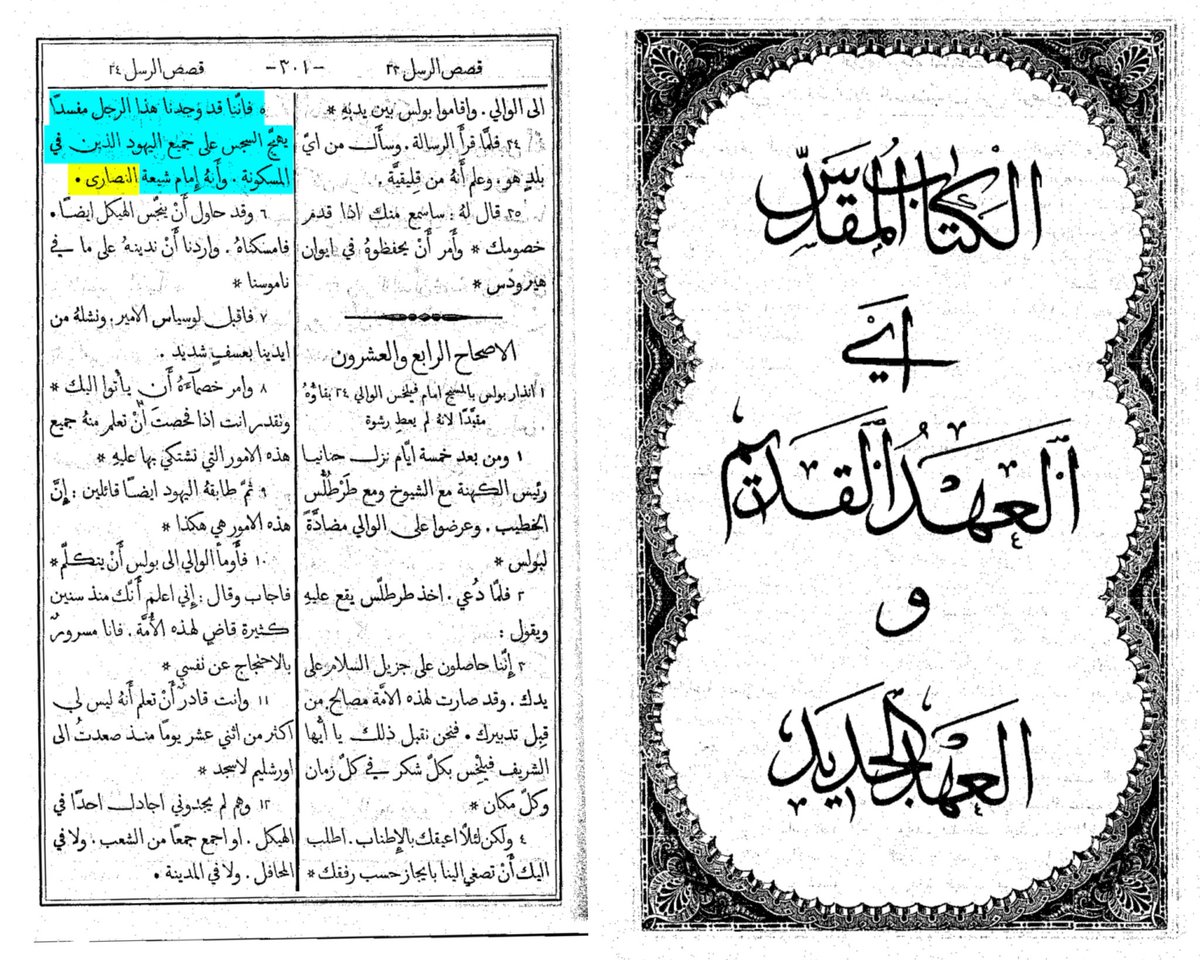 الكتاب المقدس
اي
العهد القديم
و
العهد الجديد
قصص الرسل ٢٣ -٣٠١- قصص الرسل ٢٤
الى الوالي . واقاموا بولس بين يديهِ *
٢٤ فلمَّا قرأَ الرسالة . وسأَلـــ من ايّ
بلدٍ هو . وعلم أَنهُ من قليقيَّة .
٢٥ قال لهُ : ساسمع منك اذا قدم
خصومك * وأَمر أَنْ يحفظوهُ في ايوان
هيرودس *
الاصحاح الرابع والعشرون
١ انذار بولس بالمسيح امام فيلخس الوالي ٢٤ بقاؤهُ
مقيَّدًا لانهُ لم يعطِ رشوة
١ ومن بعد خمسة ايَّام نزلـــ حنانيا
رئيس الكهنة مع الشيوخ ومع طَرْطُلُّس
الخطيب . وعرضوا على الوالي مضادَّةً
لبولس *
٢ فلمَّا دُعي . اخذ طرطلّس يقع عليهِ
ويقول :
٣ إِنَّنا حاصلون على جزيل السلام على
يدك . وقد صارت لهذه الامَّة مصالح من
قِبل تدبيرك . فنحن نقبل ذلك يا أَيها
الشريف فيلخس بكلّ شكر في كلّ زمان
وكلّ مكان *
٤ ولكن لئلَّا اعيقك بالإِطناب . اطلب
اليك أَنْ تصغي الينا بايجاز حسب رفقك *
٥ فانَّنا قد وجدنا هذا الرجل مفسدًا
يهيّج السجس على جميع اليهود الذين في
المسكونة . وأَنهُ إِمام شيعة النصارى .
٦ وقد حاول أَنْ ينجّس الهيكل ايضًا .
فامسكناهُ . واردنا أَنْ ندينهُ على ما في
ناموسنا *
٧ فاقبل لوسياس الامير . ونشلهُ من
ايدينا بعسفٍ شديد .
٨ وامر خصمآءَهُ أَن يأتوا اليك *
وتقدر انت اذا فحصتَ أَنْ تعلم منهُ جميع
هذه الامور التي نشتكي بها عليهِ *
٩ ثمَّ طابقهُ اليهود ايضًا قائلين : إِنَّ
هذه الامور هي هكذا *
١٠ فأَومأَ الوالي الى بولس أَنْ يتكلّم *
فاجاب وقال : إِني اعلم أَنَّك منذ سنين
كثيرة قاضٍ لهذه الأُمَّة . فانا مسرورٌ
بالاحتجاج عن نفسي *
١١ وانت قادرٌ أَنْ تعلم أَنهُ ليس لي
اكثر من اثني عشر يومًا منذ صعدتُ الى
اورشليم لاسجد *
١٢ وهم لم يجدوني اجادل احدًا في
الهيكل . او اجمع جمعًا من الشعب . ولا في
المحافل . ولا في المدينة .